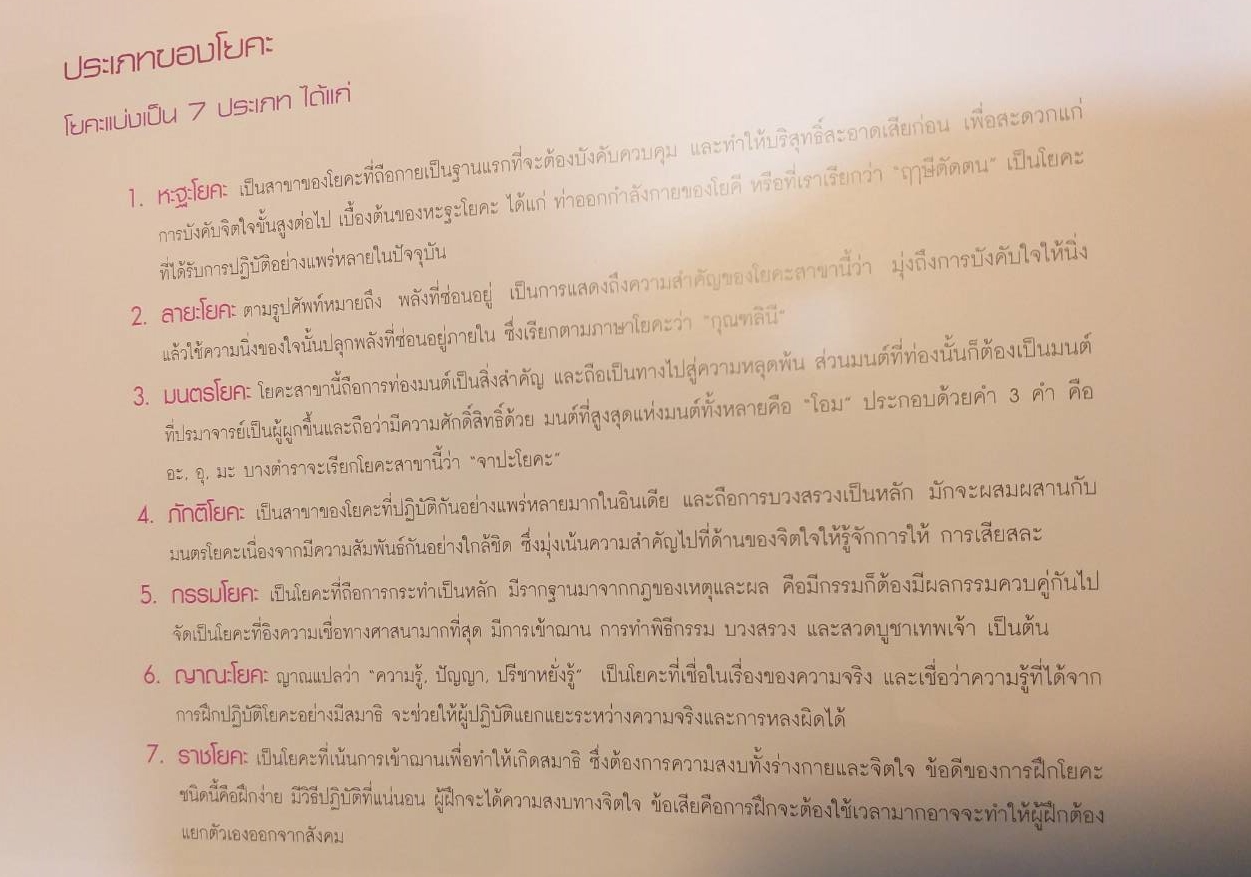 ประเภทของโยคะ
โยคะแบ่งเป็น 7 ประเภท ได้แก่
1. หะฐะโยคะ เป็นสาขาของโยคะที่ถือกายเป็นฐานแรกที่จะต้องบังคับควบคุม และทำให้บริสุทธิ์สะอาดเสียก่อน เพื่อสะดวกแก่
การบังคับจิตใจขั้นสูงต่อไป เบื้องต้นของหะฐะโยคะ ได้แก่ ท่าออกกำลังกายของโยคี หรือที่เราเรียกว่า "ฤๅษีดัดตน" เป็นโยคะ
ที่ได้รับการปฏิบัติอย่างแพร่หลายในปัจจุบัน
2. ลายะโยคะ ตามรูปศัพท์หมายถึง พลังที่ซ่อนอยู่ เป็นการแสดงถึงความสำคัญของโยคะสาขานี้ว่า มุ่งถึงการบังคับใจให้นิ่ง
แล้วใช้ความนิ่งของใจนั้นปลุกพลังที่ซ่อนอยู่ภายใน ซึ่งเรียกตามภาษาโยคะว่า "กุณฑลินี"
3. มนตรโยคะ โยคะสาขานี้ถือการท่องมนต์เป็นสิ่งสำคัญ และถือเป็นทางไปสู่ความหลุดพ้น ส่วนมนต์ที่ท่องนั้นก็ต้องเป็นมนต์
ที่ปรมาจารย์เป็นผู้ผูกขึ้นและถือว่ามีความศักดิ์สิทธิ์ด้วย มนต์ที่สูงสุดแห่งมนต์ทั้งหลายคือ "โอม" ประกอบด้วยคำ 3 คำ คือ
อะ, อุ, มะ บางตำราจะเรียกโยคะสาขานี้ว่า "จาปะโยคะ"
4. ภักติโยคะ เป็นสาขาของโยคะที่ปฏิบัติกันอย่างแพร่หลายมากในอินเดีย และถือการบวงสรวงเป็นหลัก มักจะผสมผสานกับ
มนตรโยคะเนื่องจากมีความสัมพันธ์กันอย่างใกล้ชิด ซึ่งมุ่งเน้นความสำคัญไปที่ด้านของจิตใจให้รู้จักการให้ การเสียสละ
5. กรรมโยคะ เป็นโยคะที่ถือการกระทำเป็นหลัก มีรากฐานมาจากกฎของเหตุและผล คือมีกรรมก็ต้องมีผลกรรมควบคู่กันไป
จัดเป็นโยคะที่อิงความเชื่อทางศาสนามากที่สุด มีการเข้าฌาน การทำพิธีกรรม บวงสรวง และสวดบูชาเทพเจ้า เป็นต้น
6. ญาณะโยคะ ญาณแปลว่า "ความรู้, ปัญญา, ปรีชาหยั่งรู้" เป็นโยคะที่เชื่อในเรื่องของความจริง และเชื่อว่าความรู้ที่ได้จาก
การฝึกปฏิบัติโยคะอย่างมีสมาธิ จะช่วยให้ผู้ปฏิบัติแยกแยะระหว่างความจริงและการหลงผิดได้
7. ราชโยคะ เป็นโยคะที่เน้นการเข้าฌานเพื่อทำให้เกิดสมาธิ ซึ่งต้องการความสงบทั้งร่างกายและจิตใจ ข้อดีของการฝึกโยคะ
ชนิดนี้คือฝึกง่าย มีวิธีปฏิบัติที่แน่นอน ผู้ฝึกจะได้ความสงบทางจิตใจ ข้อเสียคือการฝึกจะต้องใช้เวลามากอาจจะทำให้ผู้ฝึกต้อง
แยกตัวเองออกจากสังคม